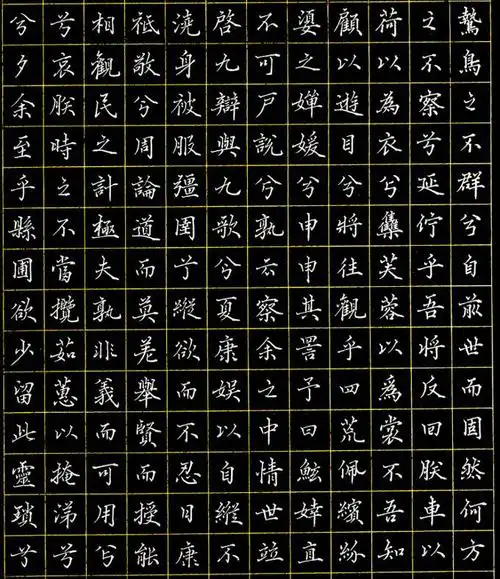 鷙鳥之不群兮自前世而固然何方
之不察兮延佇乎吾將反回朕車以
荷以為衣兮集芙蓉以爲裳不吾知
顧以遊目兮將往觀乎四荒佩繽紛
婆之嬋媛兮申申其詈予曰鮌婞直
不可戶說兮孰云察余之中情世竝
啓九辯與九歌兮夏康娛以自縱不
澆身被服彊圉兮縱欲而不忍日康
祗敬兮周論道而莫差舉賢而授能
相觀民之計極夫孰非義而可用兮
兮哀朕時之不當攬茹蕙以掩涕兮
兮夕余至乎縣圃欲少留此靈瑣兮